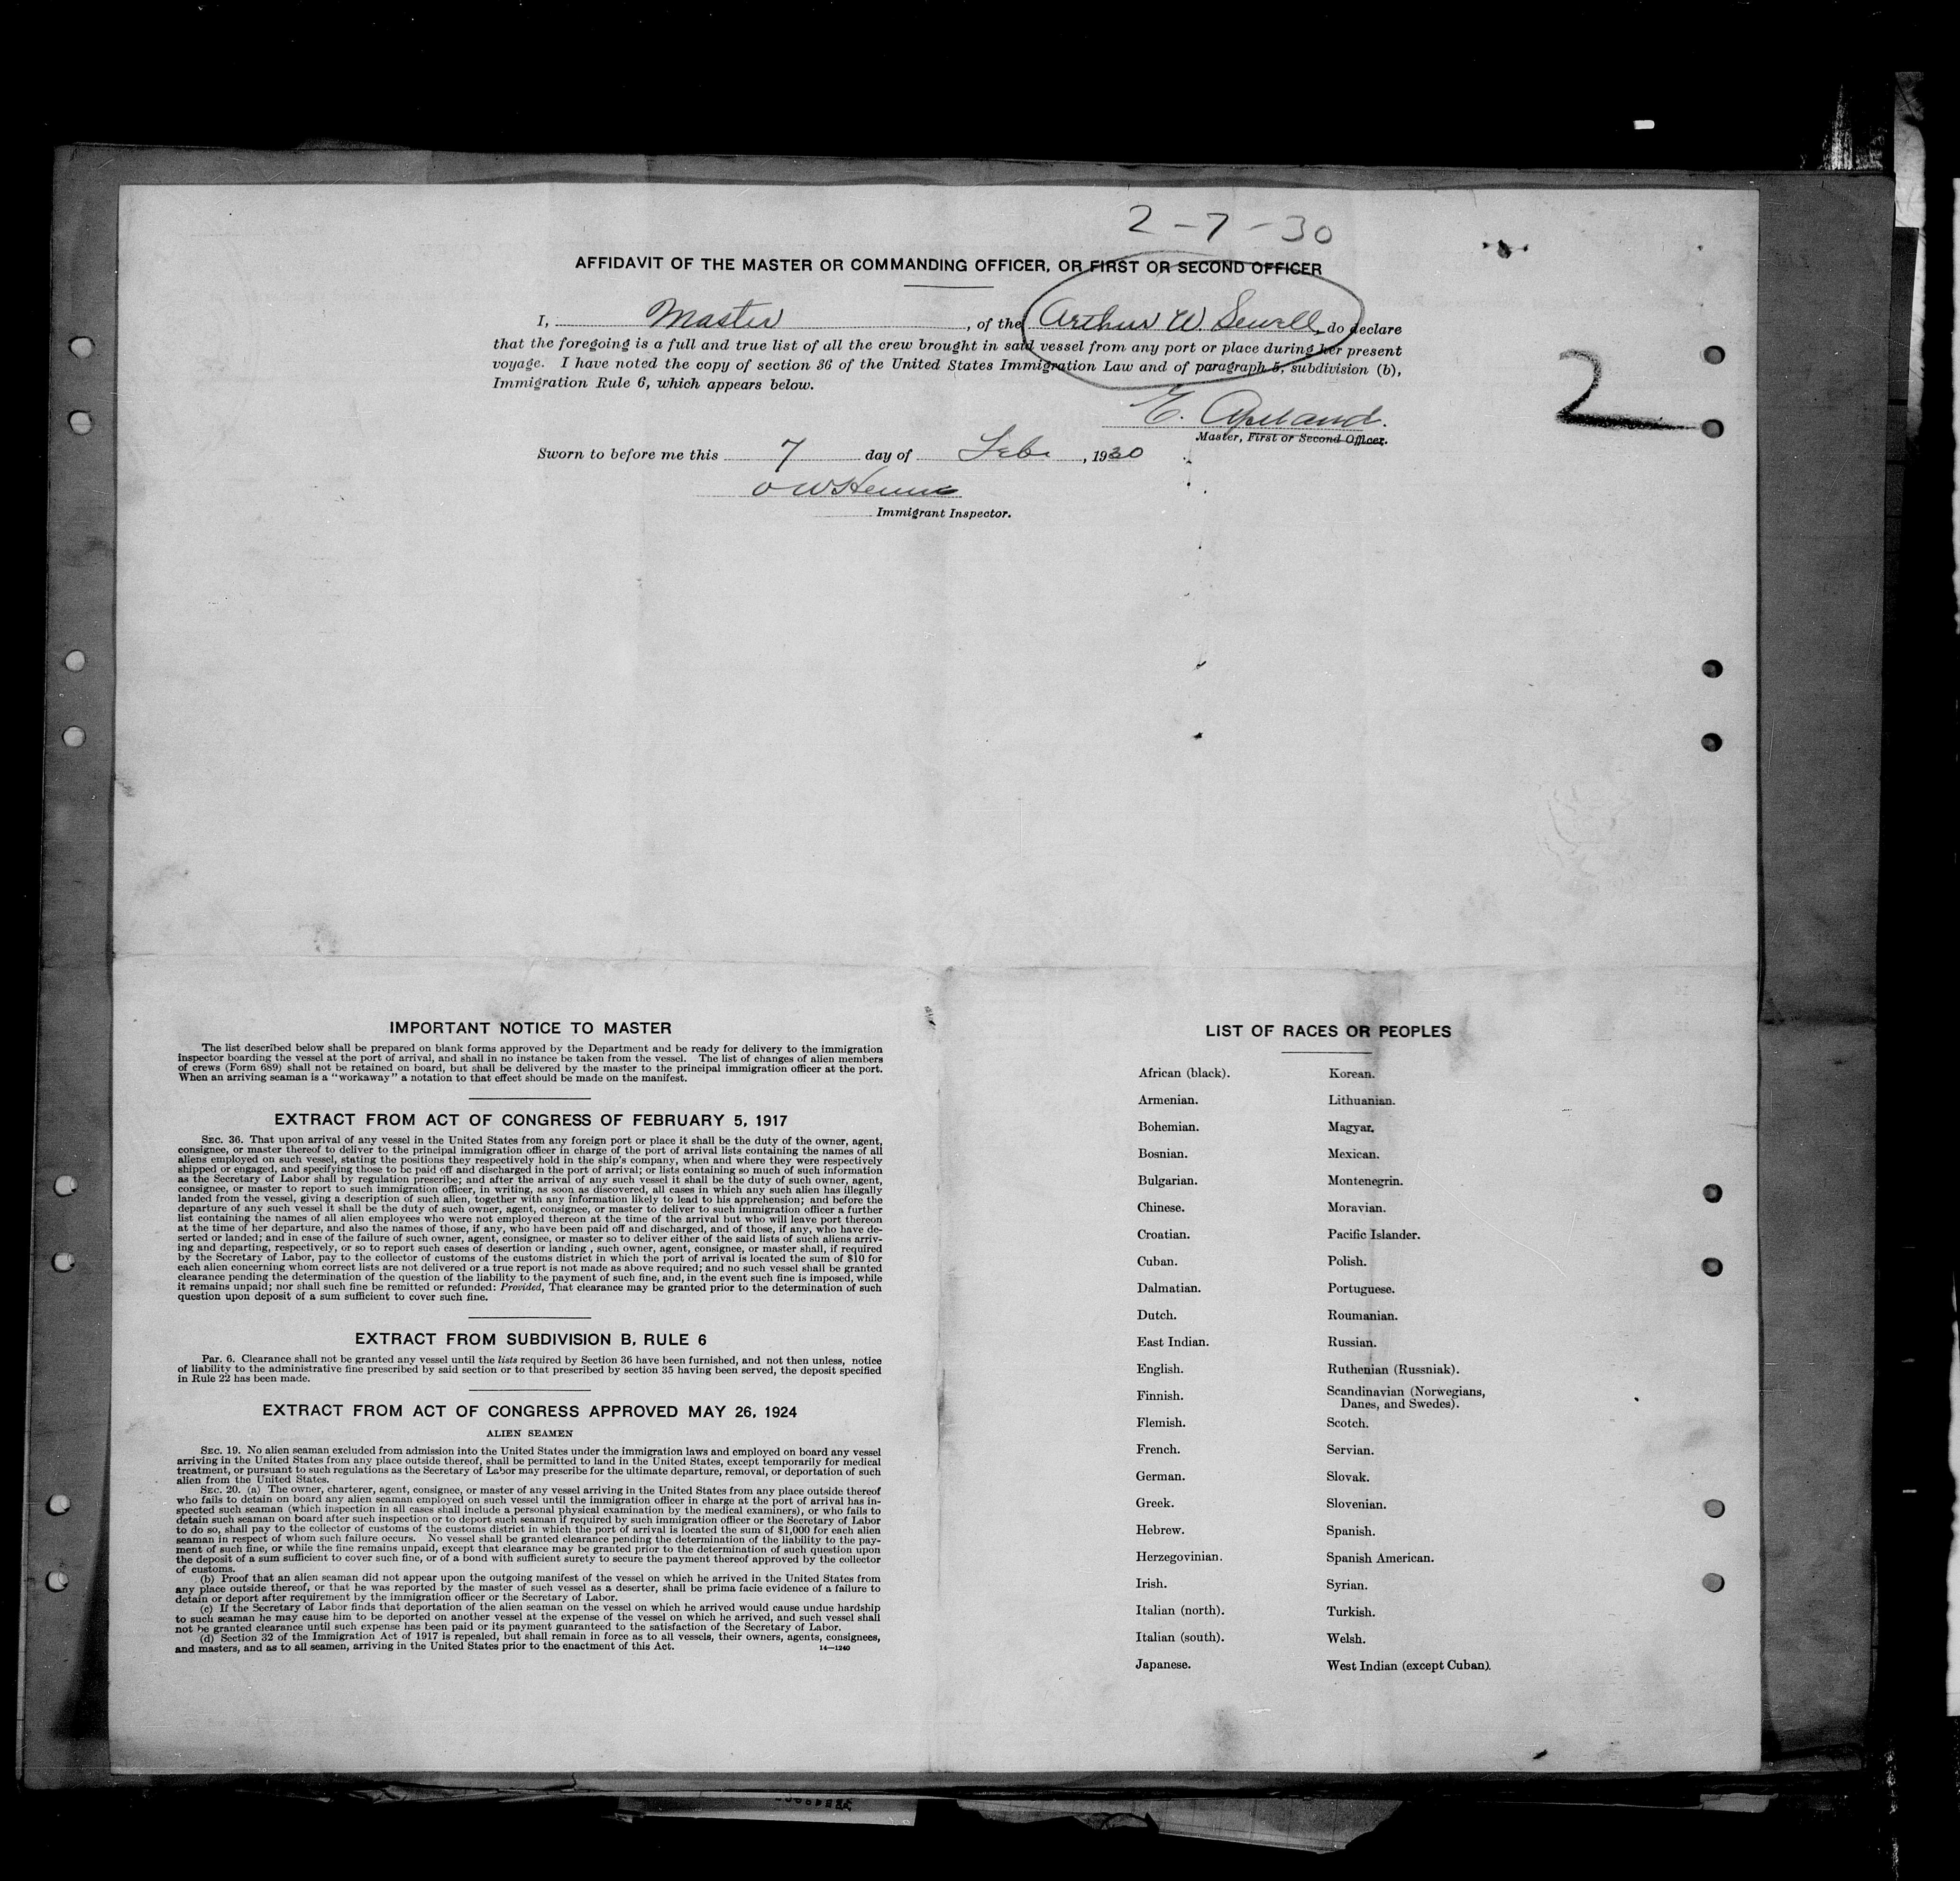 2-7-30
AFFIDAVIT OF THE MASTER OR COMMANDING OFFICER, OR FIRST OR SECOND OFFICER
I, Master, of the Arthur W. Sewall, do declare
that the foregoing is a full and true list of all the crew brought in said vessel from any port or place during her present
voyage. I have noted the copy of section 36 of the United States Immigration Law and of paragraph 5, subdivision (b),
Immigration Rule 6, which appears below.
2
E. Apeland.
Master, First or Second Officer.
Sworn to before me this 7 day of Feb., 1930
O W
Immigrant Inspector.
IMPORTANT NOTICE TO MASTER
The list described below shall be prepared on blank forms approved by the Department and be ready for delivery to the immigration
inspector boarding the vessel at the port of arrival, and shall in no instance be taken from the vessel. The list of changes of alien members
of crews (Form 689) shall not be retained on board, but shall be delivered by the master to the principal immigration officer at the port.
When an arriving seaman is a "workaway" a notation to that effect should be made on the manifest.
EXTRACT FROM ACT OF CONGRESS OF FEBRUARY 5, 1917
SEC. 36. That upon arrival of any vessel in the United States from any foreign port or place it shall be the duty of the owner, agent,
consignee, or master thereof to deliver to the principal immigration officer in charge of the port of arrival lists containing the names of all
aliens employed on such vessel, stating the positions they respectively hold in the ship's company, when and where they were respectively
shipped or engaged, and specifying those to be paid off and discharged in the port of arrival; or lists containing so much of such information
as the Secretary of Labor shall by regulation prescribe; and after the arrival of any such vessel it shall be the duty of such owner, agent,
consignee, or master to report to such immigration officer, in writing, as soon as discovered, all cases in which any such alien has illegally
landed from the vessel, giving a description of such alien, together with any information likely to lead to his apprehension; and before the
departure of any such vessel it shall be the duty of such owner, agent, consignee, or master to deliver to such immigration officer a further
list containing the names of all alien employees who were not employed thereon at the time of the arrival but who will leave port thereon
at the time of her departure, and also the names of those, if any, who have been paid off and discharged, and of those, if any, who have de-
serted or landed; and in case of the failure of such owner, agent, consignee, or master so to deliver either of the said lists of such aliens arriv-
ing and departing, respectively, or so to report such cases of desertion or landing , such owner, agent, consignee, or master shall, if required
by the Secretary of Labor, pay to the collector of customs of the customs district in which the port of arrival is located the sum of $10 for
each alien concerning whom correct lists are not delivered or a true report is not made as above required; and no such vessel shall be granted
clearance pending the determination of the question of the liability to the payment of such fine, and, in the event such fine is imposed, while
it remains unpaid; nor shall such fine be remitted or refunded: Provided, That clearance may be granted prior to the determination of such
question upon deposit of a sum sufficient to cover such fine.
EXTRACT FROM SUBDIVISION B, RULE 6
Par. 6. Clearance shall not be granted any vessel until the lists required by Section 36 have been furnished, and not then unless, notice
of liability to the administrative fine prescribed by said section or to that prescribed by section 35 having been served, the deposit specified
in Rule 22 has been made.
EXTRACT FROM ACT OF CONGRESS APPROVED MAY 26, 1924
ALIEN SEAMEN
SEC. 19. No alien seaman excluded from admission into the United States under the immigration laws and employed on board any vessel
arriving in the United States from any place outside thereof, shall be permitted to land in the United States, except temporarily for medical
treatment, or pursuant to such regulations as the Secretary of Labor may prescribe for the ultimate departure, removal, or deportation of such
alien from the United States.
SEC. 20. (a) The owner, charterer, agent, consignee, or master of any vessel arriving in the United States from any place outside thereof
who fails to detain on board any alien seaman employed on such vessel until the immigration officer in charge at the port of arrival has in-
spected such seaman (which inspection in all cases shall include a personal physical examination by the medical examiners), or who fails to
detain such seaman on board after such inspection or to deport such seaman if required by such immigration officer or the Secretary of Labor
to do so, shall pay to the collector of customs of the customs district in which the port of arrival is located the sum of $1,000 for each alien
seaman in respect of whom such failure occurs. No vessel shall be granted clearance pending the determination of the liability to the pay-
ment of such fine, or while the fine remains unpaid, except that clearance may be granted prior to the determination of such question upon
the deposit of a sum sufficient to cover such fine, or of a bond with sufficient surety to secure the payment thereof approved by the collector
of customs.
(b) Proof that an alien seaman did not appear upon the outgoing manifest of the vessel on which he arrived in the United States from
any place outside thereof, or that he was reported by the master of such vessel as a deserter, shall be prima facie evidence of a failure to
detain or deport after requirement by the immigration officer or the Secretary of Labor.
(c) If the Secretary of Labor finds that deportation of the alien seaman on the vessel on which he arrived would cause undue hardship
to such seaman he may cause him to be deported on another vessel at the expense of the vessel on which he arrived, and such vessel shall
not be granted clearance until such expense has been paid or its payment guaranteed to the satisfaction of the Secretary of Labor.
(d) Section 32 of the Immigration Act of 1917 is repealed, but shall remain in force as to all vessels, their owners, agents, consignees,
and masters, and as to all seamen, arriving in the United States prior to the enactment of this Act.
14—1240
LIST OF RACES OR PEOPLES
African (black).
Armenian.
Bohemian.
Bosnian.
Bulgarian.
Chinese.
Croatian.
Cuban.
Dalmatian.
Dutch.
East Indian.
English.
Finnish.
Flemish.
French.
German.
Greek.
Hebrew.
Herzegovinian.
Irish.
Italian (north).
Italian (south).
Japanese.
Korean.
Lithuanian.
Magyar.
Mexican.
Montenegrin.
Moravian.
Pacific Islander.
Polish.
Portuguese.
Roumanian.
Russian.
Ruthenian (Russniak).
Scandinavian (Norwegians,
Danes, and Swedes).
Scotch.
Servian.
Slovak.
Slovenian.
Spanish.
Spanish American.
Syrian.
Turkish.
Welsh.
West Indian (except Cuban).